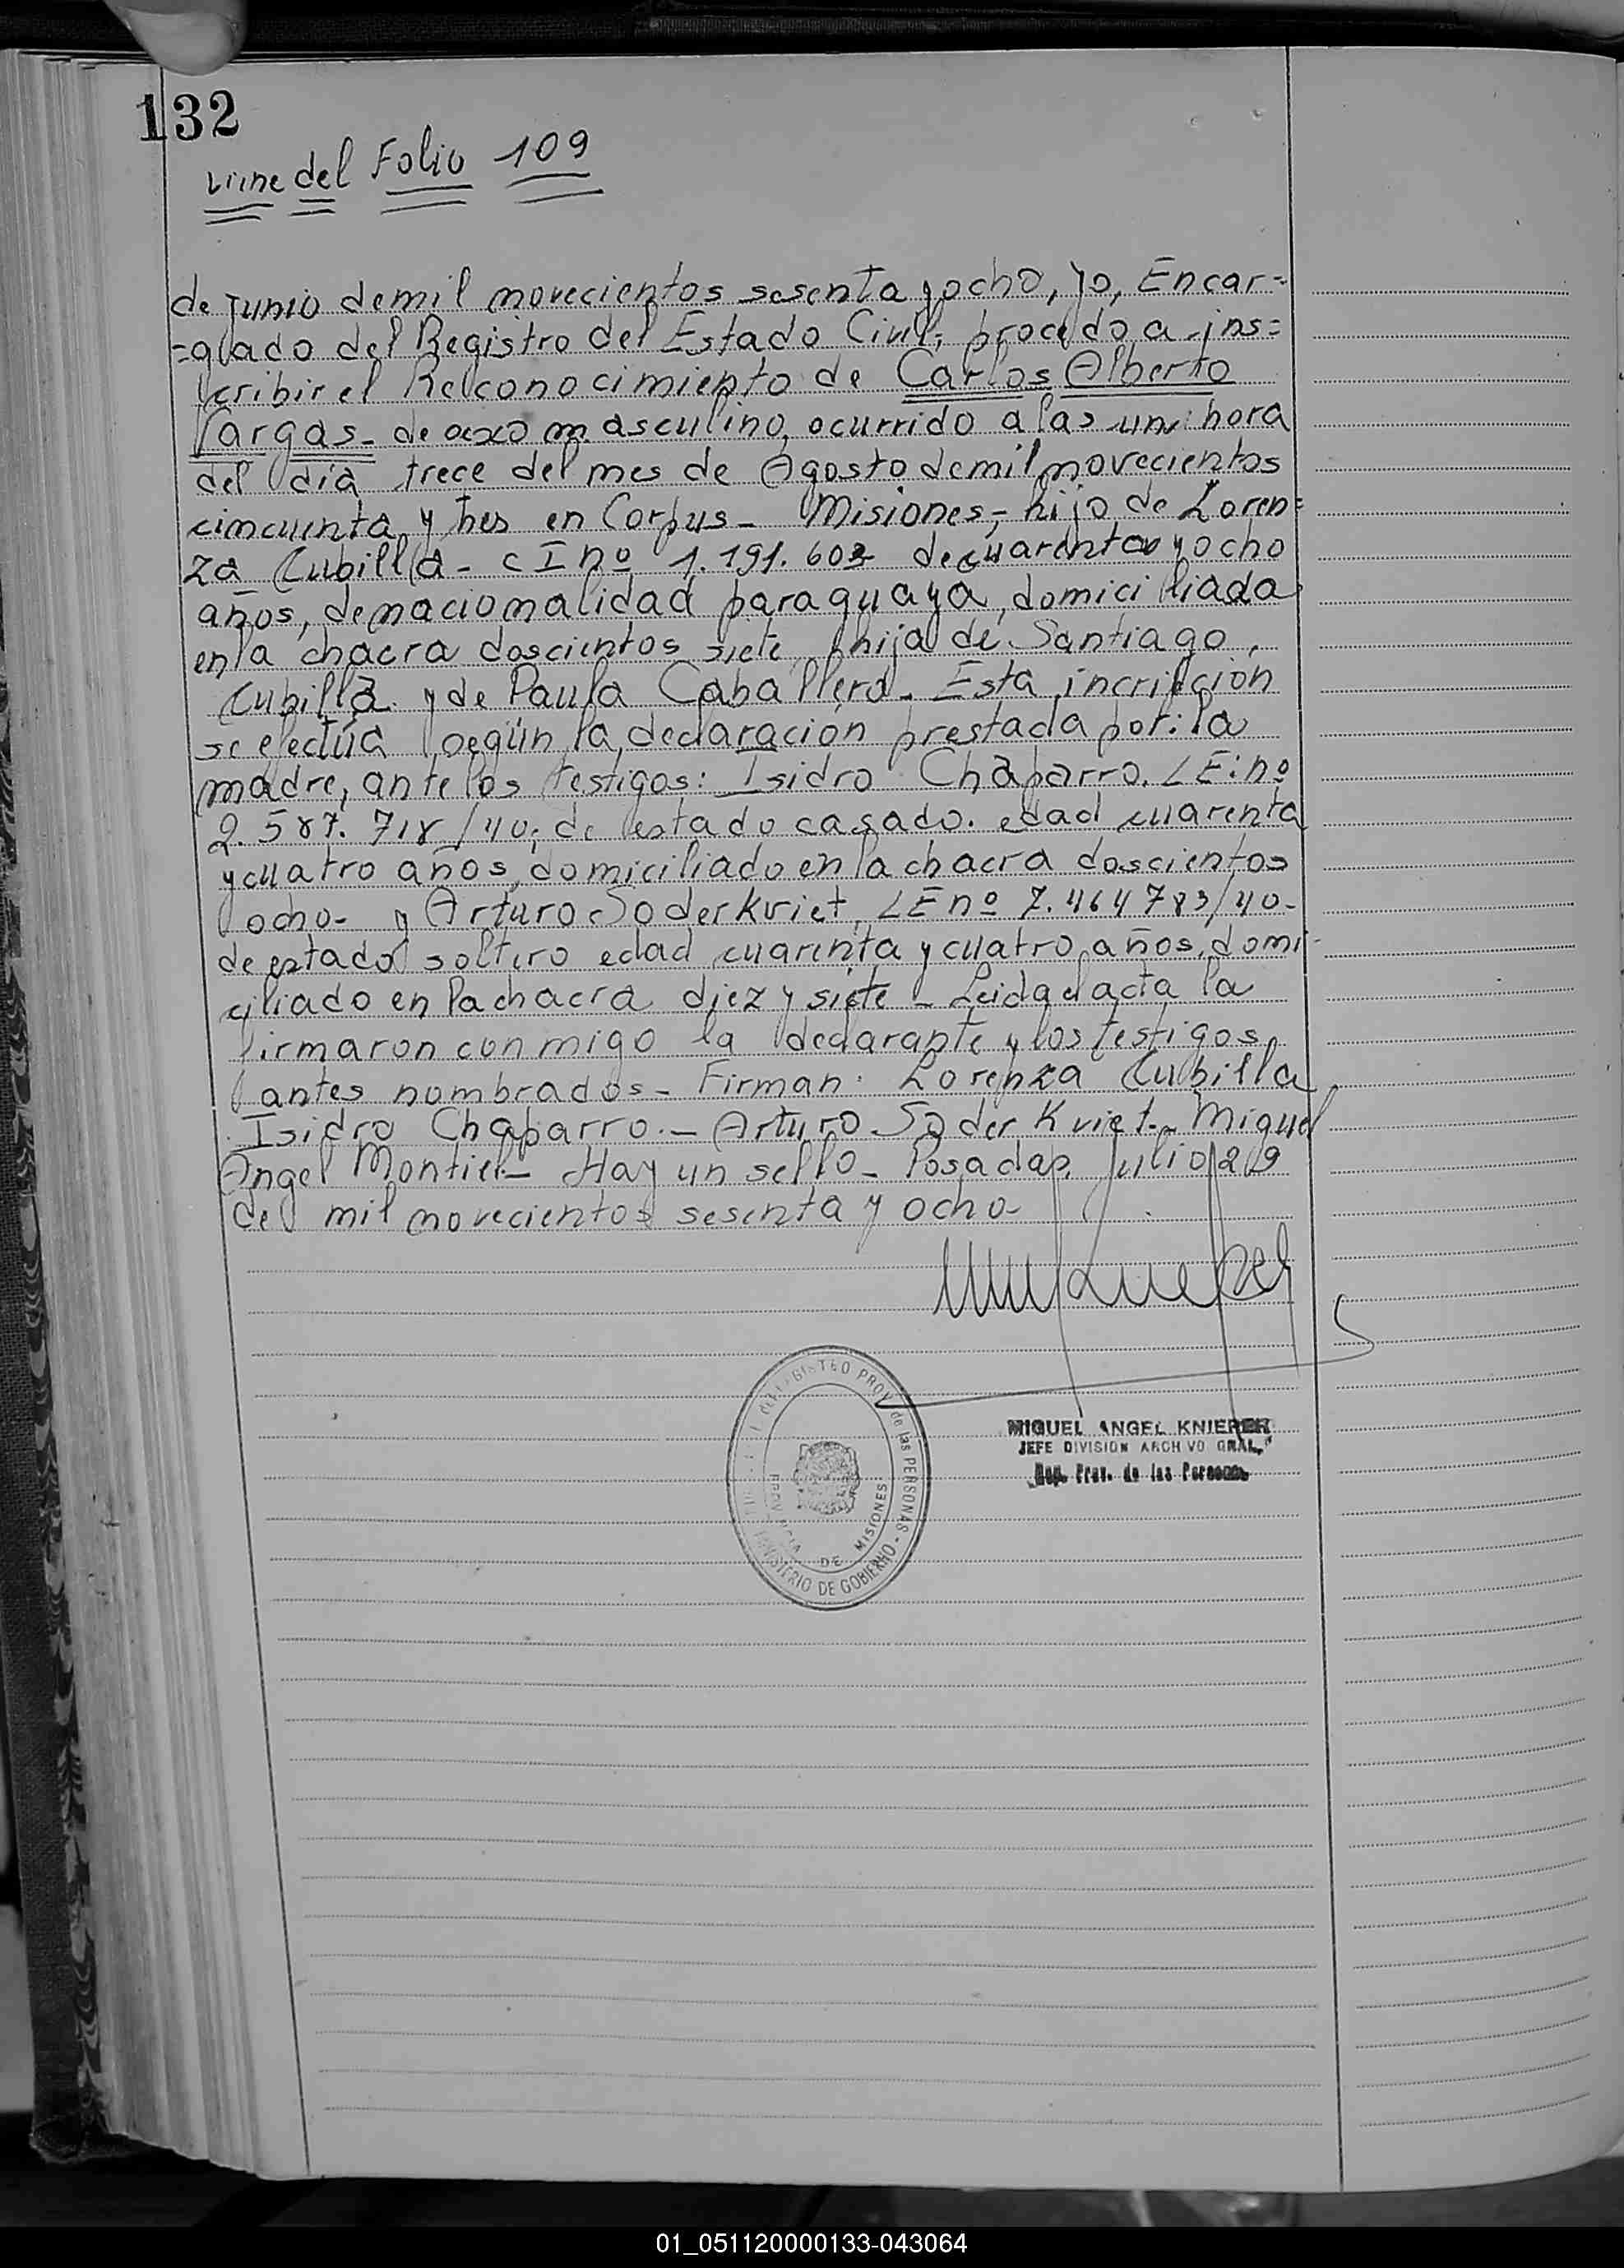 132
viene del Folio 109
de junio de mil novecientos sesenta y ocho, yo, Encar=
=gado del Registro del Estado Civil, procedo a ins=
cribir el Reconocimiento de Carlos Alberto
Vargas- de sexo masculino, ocurrido a las una hora
del día trece del mes de Agosto de mil novecientos
cincuenta y tres en Corpus- Misiones,- hijo de Loren=
za Cubilla- C I nº 1.191.603 de cuarenta y ocho
años, de nacionalidad paraguaya, domiciliada
en la chacra doscientos siete, hija de Santiago
Cubilla y de Paula Caballero- Esta incripción
se efectúa según la declaración prestada por: la
madre, ante los testigos: Isidro Chaparro. L E: nº
2.587.718/40; de estado casado. edad cuarenta
y cuatro años, domiciliado en la chacra doscientos
ocho- y Arturo Soderkviet, L E nº 7.464783/40-
de estado soltero edad cuarenta y cuatro años, domi-
ciliado en la chacra diez y siete- Leida el acta la
firmaron conmigo la declarante y los testigos
antes nombrados- Firman: Lorenza Cubilla
Isidro Chaparro.- Arturo Soder Kviet.- Miguel
Angel Montiel- Hay un sello- Posadas, Julio 29
de mil novecientos sesenta y ocho-
REGISTRO PROV de las PERSONAS - MINISTERIO DE GOBIERNO
PROVINCIA DE MISIONES
MIGUEL ANGEL KNIERER
JEFE DIVISION ARCHIVO GRAL.
Reg. Prov. de las Personas
01_051120000133-043064